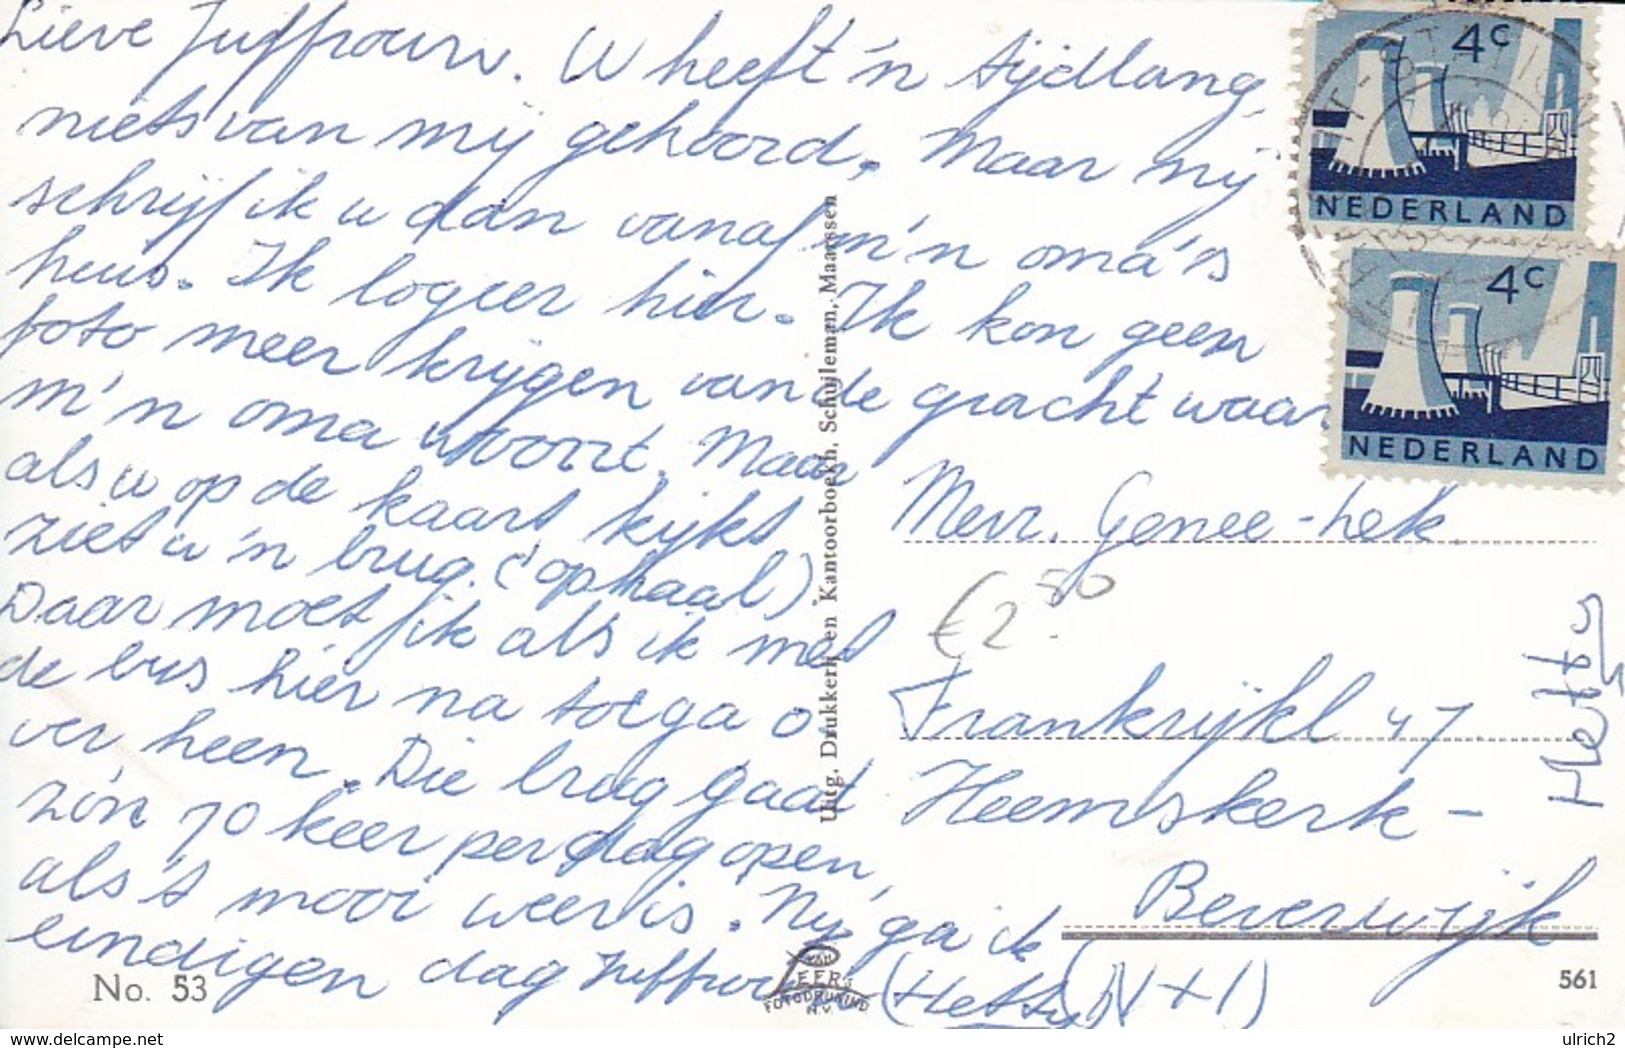 Lieve Juffrouw. U heeft 'n tijdlang,
niets van mij gehoord. Maar nij
schrijf ik u dan vanaf m'n oma's
heus. Ik logeer hier. Ik kon geen
foto meer krijgen van de gracht waar
m'n oma woont. Maar
als u op de kaart kijkt
ziet u 'n brug. (ophaal)
Daar moet ik als ik met
de bus hier na toe ga o
ver heen. Die brug gaat
zo'n 70 keer per dag open,
als 't mooi weer is. Nu ga ik
eindigen dag Juffrouw (Hetty) (N+1)
Mevr. Genee-hek.
€2.50
Frankrijkl 47.
Heemskerk -
Beverwijk
Hetty
4c
NEDERLAND
4c
NEDERLAND
Uitg. Drukkerij en Kantoorboekh. Schuijleman, Maarssen
No. 53
VAN
LEER's
FOTODRUKIND
N.V.
561
delcampe.net
ulrich2